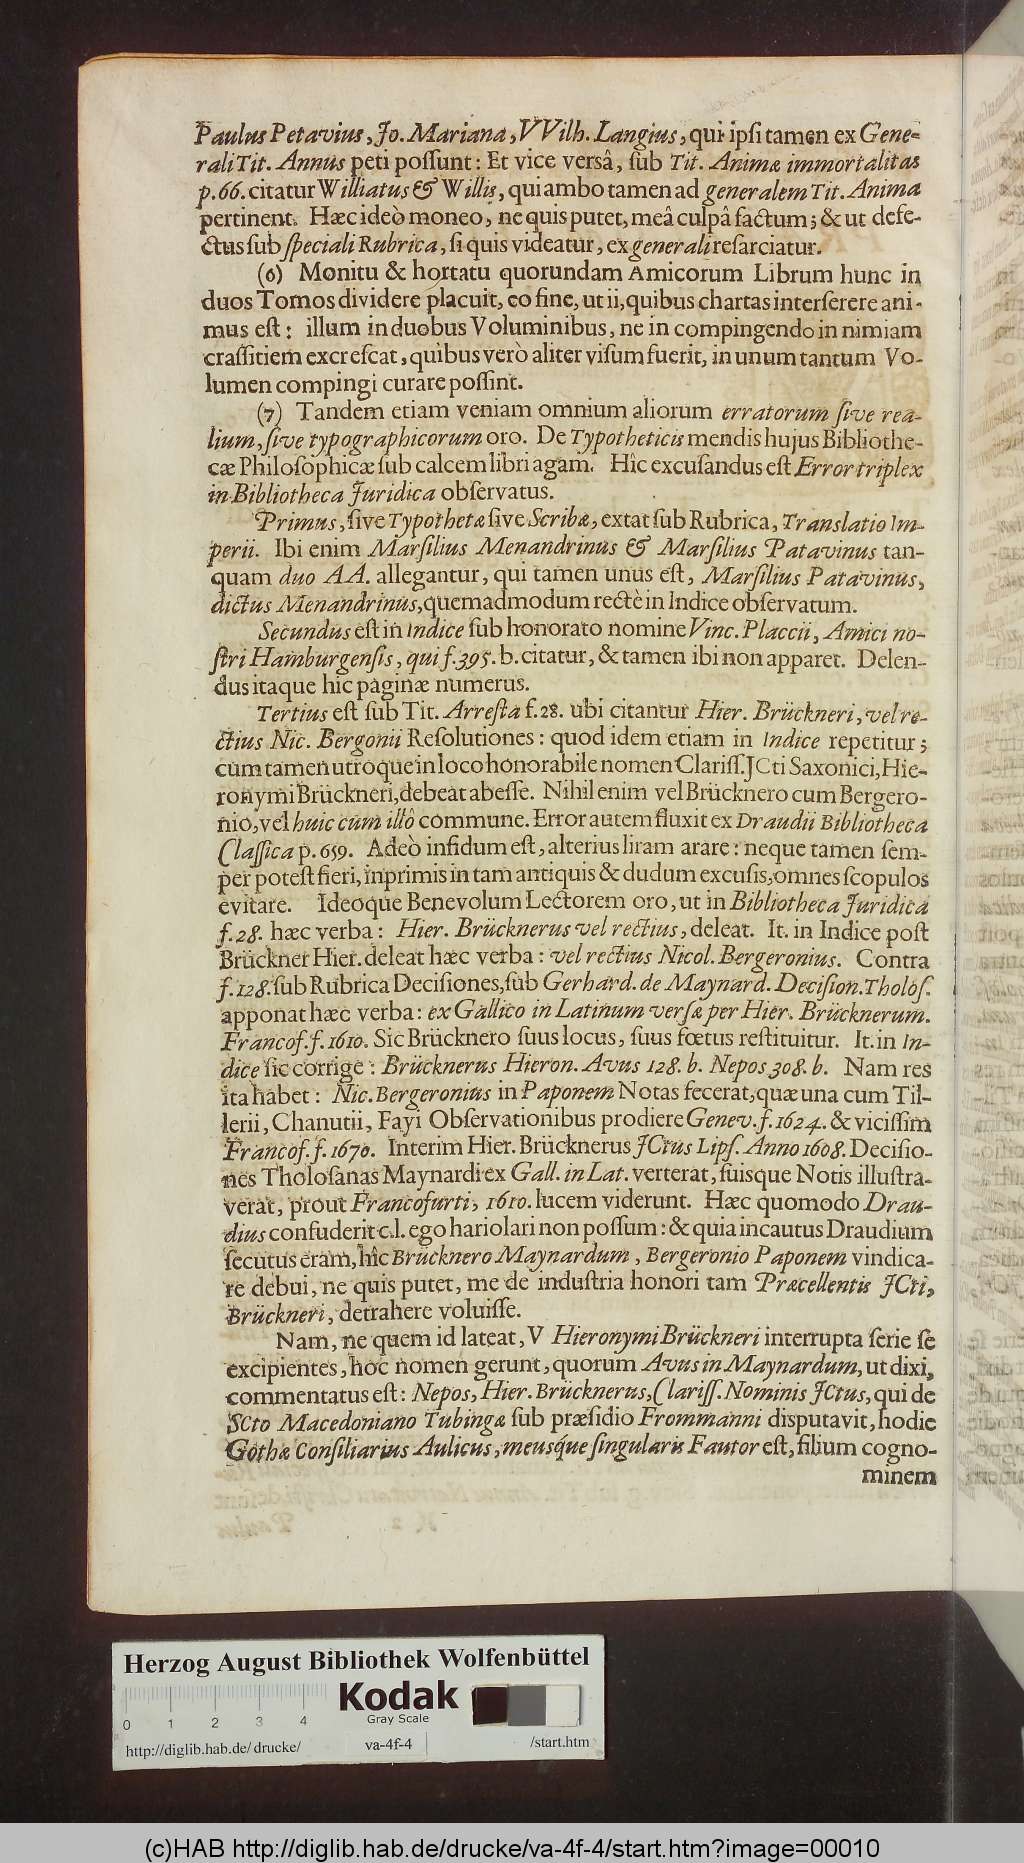 Paulus Petavius, Jo. Mariana, VVilh. Langius, qui ipſi tamen ex Gene-
rali Tit. Annus peti poſſunt: Et vice versâ, ſub Tit. Animæ immortalitas
p. 66. citatur Williatus & Willis, qui ambo tamen ad generalem Tit. Anima
pertinent. Hæc ideò moneo, ne quis putet, meâ culpâ factum; & ut defe-
ctus ſub ſpeciali Rubrica, ſi quis videatur, ex generali reſarciatur.
(6) Monitu & hortatu quorundam Amicorum Librum hunc in
duos Tomos dividere placuit, eo fine, ut ii, quibus chartas interſerere ani-
mus eſt: illum in duobus Voluminibus, ne in compingendo in nimiam
craſſitiem excreſcat, quibus verò aliter viſum fuerit, in unum tantum Vo-
lumen compingi curare poſſint.
(7) Tandem etiam veniam omnium aliorum erratorum ſive rea-
lium, ſive typographicorum oro. De Typotheticis mendis hujus Bibliothe-
cæ Philoſophicæ ſub calcem libri agam. Hîc excuſandus eſt Error triplex
in Bibliotheca Juridica obſervatus.
Primus, ſive Typothetæ ſive Scribæ, extat ſub Rubrica, Translatio Im-
perii. Ibi enim Marſilius Menandrinus & Marſilius Patavinus tan-
quam duo AA. allegantur, qui tamen unus eſt, Marſilius Patavinus,
dictus Menandrinus, quemadmodum rectè in Indice obſervatum.
Secundus eſt in Indice ſub honorato nomine Vinc. Placcii, Amici no-
ſtri Hamburgenſis, qui f. 395. b. citatur, & tamen ibi non apparet. Delen-
dus itaque hic paginæ numerus.
Tertius eſt ſub Tit. Arreſta f. 28. ubi citantur Hier. Brückneri, vel re-
ctius Nic. Bergonii Reſolutiones: quod idem etiam in Indice repetitur;
cùm tamen utroque in loco honorabile nomen Clariſſ. JCti Saxonici, Hie-
ronymi Brückneri, debeat abeſſe. Nihil enim vel Brücknero cum Bergero-
nio, vel huic cum illô commune. Error autem fluxit ex Draudii Bibliotheca
Claſſica p. 659. Adeò infidum eſt, alterius liram arare: neque tamen ſem-
per poteſt fieri, inprimis in tam antiquis & dudum excuſis, omnes ſcopulos
evitare. Ideoque Benevolum Lectorem oro, ut in Bibliotheca Juridica
f. 28. hæc verba: Hier. Brücknerus vel rectius, deleat. It. in Indice poſt
Brückner Hier. deleat hæc verba: vel rectius Nicol. Bergeronius. Contra
f. 128. ſub Rubrica Deciſiones, ſub Gerhard. de Maynard. Deciſion. Tholoſ.
apponat hæc verba: ex Gallico in Latinum verſæ per Hier. Brücknerum.
Francof. f. 1610. Sic Brücknero ſuus locus, ſuus fœtus reſtituitur. It. in In-
dice ſic corrige: Brücknerus Hieron. Avus 128. b. Nepos 308. b. Nam res
ita habet: Nic. Bergeronius in Paponem Notas fecerat, quæ una cum Til-
lerii, Chanutii, Fayi Obſervationibus prodiere Genev. f. 1624. & viciſſim
Francof. f. 1670. Interim Hier. Brücknerus JCtus Lipſ. Anno 1608. Deciſio-
nes Tholoſanas Maynardi ex Gall. in Lat. verterat, ſuisque Notis illuſtra-
verat, prout Francofurti, 1610. lucem viderunt. Hæc quomodo Drau-
dius confuderit c. l. ego hariolari non poſſum: & quia incautus Draudium
ſecutus eram, hîc Brücknero Maynardum, Bergeronio Paponem vindica-
re debui, ne quis putet, me de induſtria honori tam Præcellentis JCti,
Brückneri, detrahere voluiſſe.
Nam, ne quem id lateat, V Hieronymi Brückneri interrupta ſerie ſe
excipientes, hoc nomen gerunt, quorum Avus in Maynardum, ut dixi,
commentatus eſt: Nepos, Hier. Brücknerus, Clariſſ. Nominis JCtus, qui de
SCto Macedoniano Tubingæ ſub præſidio Frommanni diſputavit, hodie
Gothæ Conſiliarius Aulicus, meusq́ue ſingularis Fautor eſt, filium cogno-
minem
Herzog August Bibliothek Wolfenbüttel
Kodak
Gray Scale
0 1 2 3 4
http://diglib.hab.de/drucke/ va-4f-4 /start.htm
(c)HAB http://diglib.hab.de/drucke/va-4f-4/start.htm?image=00010